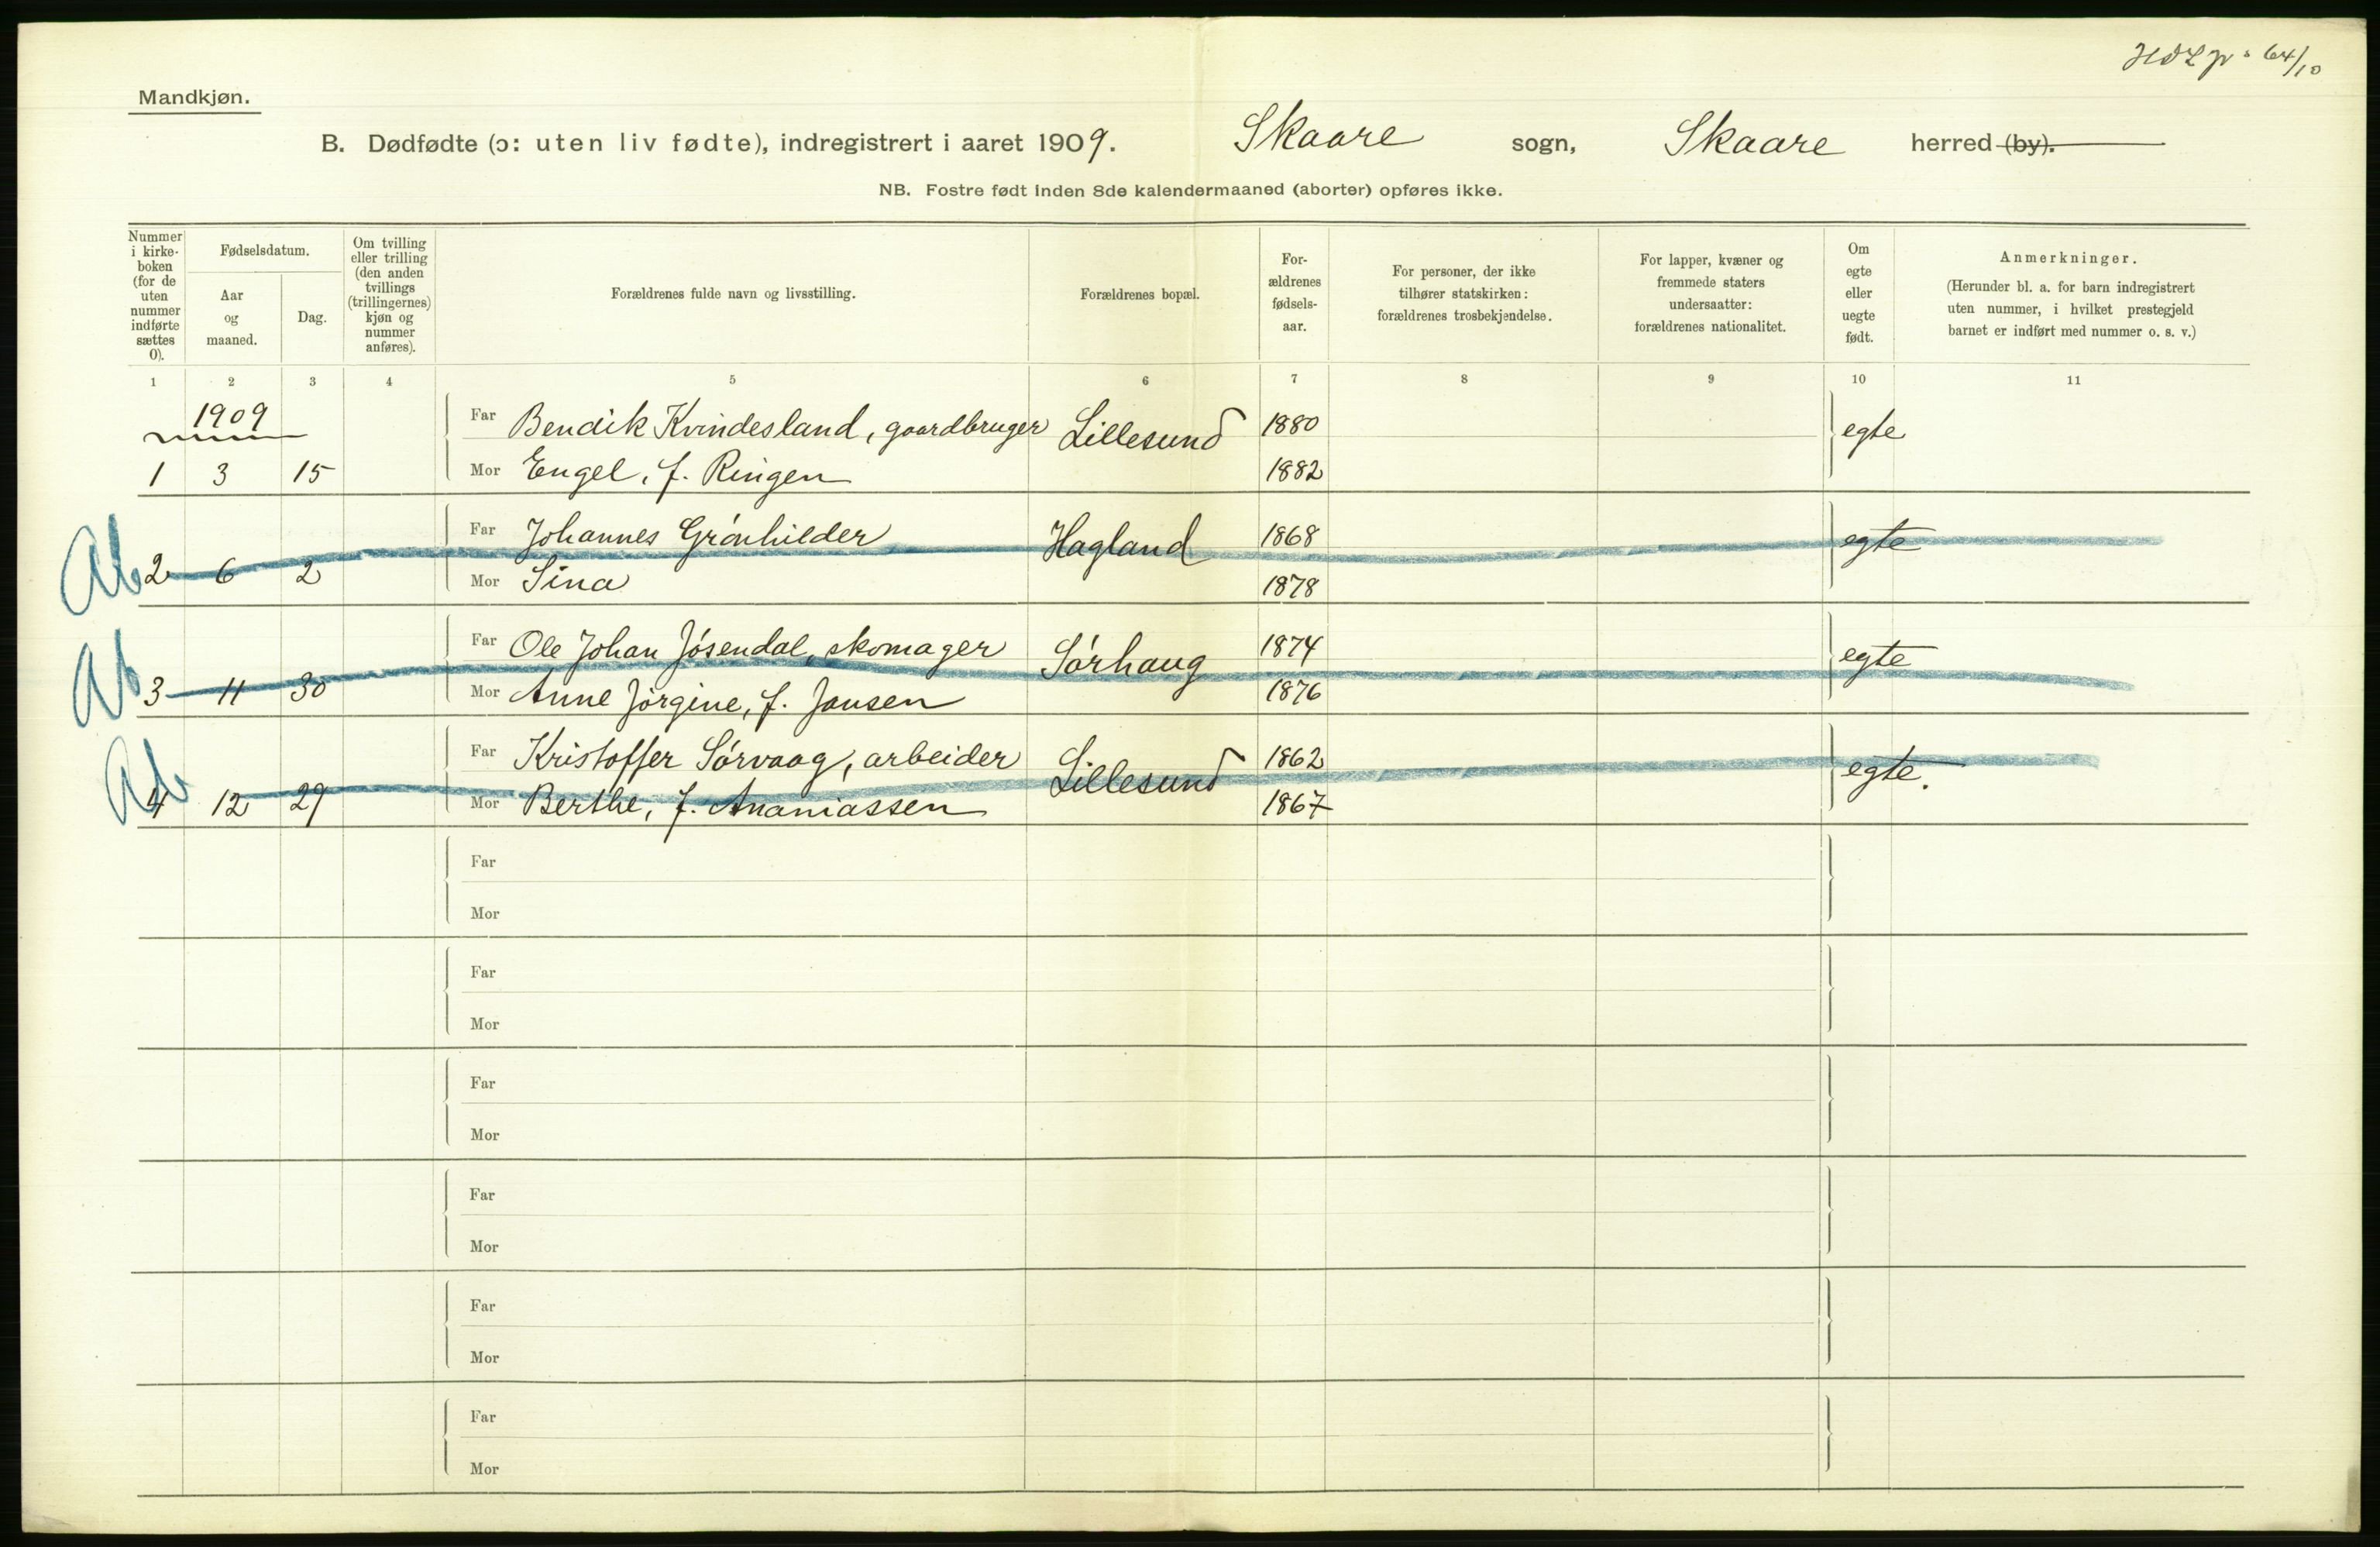 64/10
Mandkjøn.
B. Dødfødte (ɔ: uten liv fødte), indregistrert i aaret 1909. Skaare sogn, Skaare herred (by).
NB. Fostre født inden 8de kalendermaaned (aborter) opføres ikke.
Nummer i kirke-boken (for de uten nummer indførte sættes 0).
Fødselsdatum.
Aar og maaned.
Dag.
Om tvilling eller trilling (den anden tvillings (trillingernes) kjøn og nummer anføres).
Forældrenes fulde navn og livsstilling.
Forældrenes bopæl.
For-ældrenes fødsels-aar.
For personer, der ikke tilhører statskirken: forældrenes trosbekjendelse.
For lapper, kvæner og fremmede staters undersaatter: forældrenes nationalitet.
Om egte eller uegte født.
Anmerkninger.
(Herunder bl. a. for barn indregistrert uten nummer, i hvilket prestegjeld barnet er indført med nummer o. s. v.)
1 2 3 4 5 6 7 8 9 10 11
1909
Far Bendik Kvindesland, gaardbruger Lillesund 1880 egte
1 3 15 Mor Engel, f. Ringen 1882
Far Johannes Grónhilder Hagland 1868 egte
Ab 2 6 2 Mor Sina 1878
Far Ole Johan Jósendal, skomager Sórhaug 1874 egte
Ab 3 11 30 Mor Anne Jórgine, f. Jansen 1876
Far Kristoffer Sórvaag, arbeider Lillesund 1862 egte.
Ab 4 12 29 Mor Berthe, f. Ananiassen 1867
Far
Mor
Far
Mor
Far
Mor
Far
Mor
Far
Mor
Far
Mor